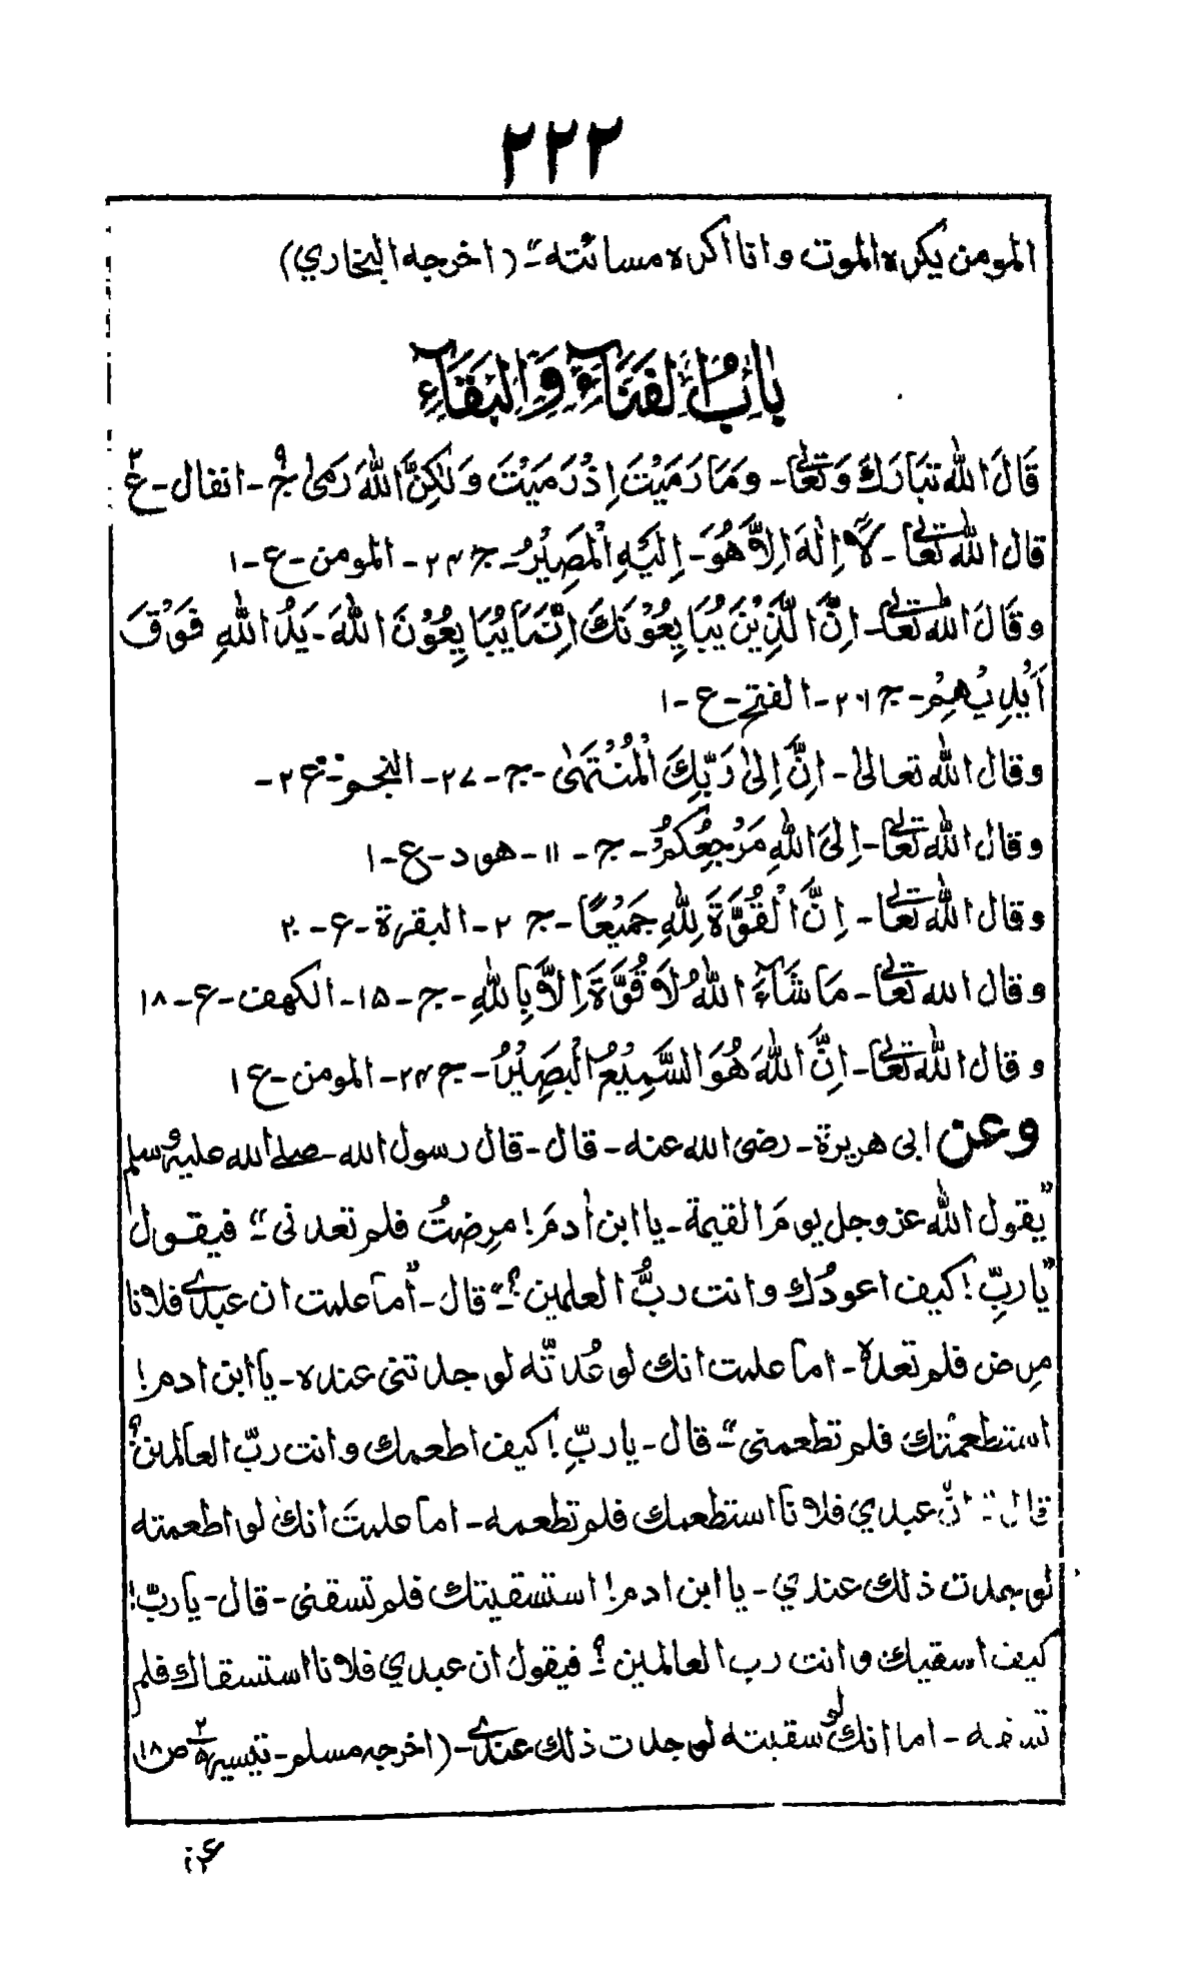 ٢٢٢
المومن يكره الموت وانا اكره مسائته" - (اخرجه البخاري)
بَابُ الْفَنَآءِ وَالْبَقَآءِ
قَالَ الله تبَارَكَ وَتَعَالٰى - وَمَا رَمَيْتَ اِذْ رَمَيْتَ وَلٰكِنَّ اللهَ رَمٰى ج ٩ - انفال - ع ٢
قال الله تعالى - لَآ اِلٰهَ اِلَّا هُوَ - اِلَيْهِ الْمَصِيْرُ - ج ٢٤ - المومن - ع - ١
وقَالَ الله تعالى - اِنَّ الَّذِيْنَ يُبَايِعُوْنَكَ اِنَّمَا يُبَايِعُوْنَ اللهَ - يَدُ اللهِ فَوْقَ
اَيْدِيْهِمْ - ج ٢٠١ - الفتح - ع - ١
وقال الله تعالىٰ - اِنَّ اِلىٰ رَبِّكَ الْمُنْتَهىٰ - ج - ٢٧ - النجم - ع ٢ -
وقال الله تعالى - اِلَى اللهِ مَرْجِعُكُمْ - ج - ١١ - هود - ع - ١
وقال الله تعالى - اِنَّ الْقُوَّةَ لِلّٰهِ جَمِيْعًا - ج ٢ - البقرة - ع - ٢٠
وقال الله تعالى - مَا شَآءَ اللهُ لَا قُوَّةَ اِلَّا بِاللهِ - ج - ١٥ - الكهف - ع - ١٨
وقال الله تعالى - اِنَّ اللهَ هُوَ السَّمِيْعُ الْبَصِيْرُ - ج ٢٤ - المومن - ع ١
وعن ابى هريرة - رضى الله عنه - قال - قال رسول الله - صلے الله عليه وسلم
"يقول الله عزوجل يومَ القيمة - يا ابن اٰدمَ! مرِضتُ فلم تعدنى" - فيقول
"يا ربِّ! كيف اعودُك وانت ربُّ العلمين؟" - قال - "اَما علمت ان عبدے فلانا
مرِض فلم تعدهُ - اما علمت انك لو عُدتَّه لوجدتنى عنده - يا ابن ادم!
استطعمتك فلم تطعمنى" - قال - يا ربِّ! كيف اطعمك وانت ربّ العالمين؟
قال - انّ عبدي فلانا استطعمك فلم تطعمه - اما علمتَ انك لو اطعمته
لوجدت ذلك عندي - يا ابن ادم! استسقيتك فلم تسقنى - قال - يا ربّ!
كيف اسقيك وانت رب العالمين؟ - فيقول ان عبدي فلانا استسقاك فلم
تسقه - اما انك لو سقيته لوجدت ذلك عندے - (اخرجه مسلم - تيسير ٢ ص ١٨